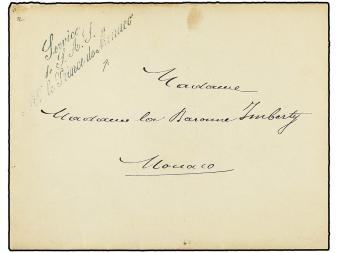 Service
de S. A. S.
Mgr le Prince de Monaco
Madame
Madame la Baronne Imberty
Monaco